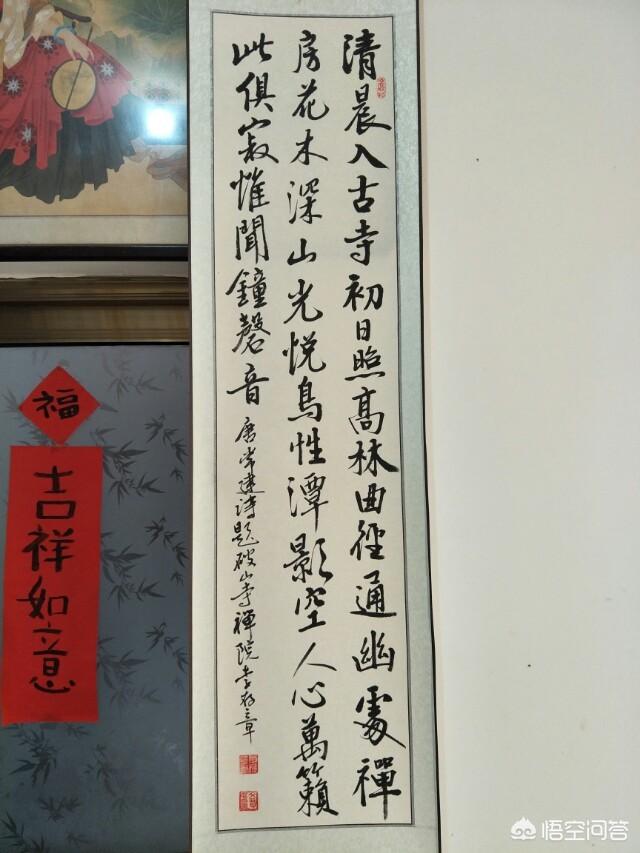 清晨入古寺初日照高林曲径通幽處禪
房花木深山光悦鳥性潭影空人心萬籟
此俱寂惟聞鐘磬音
唐常建詩題破山寺禪院李
章
福
吉祥如意
悟空问答